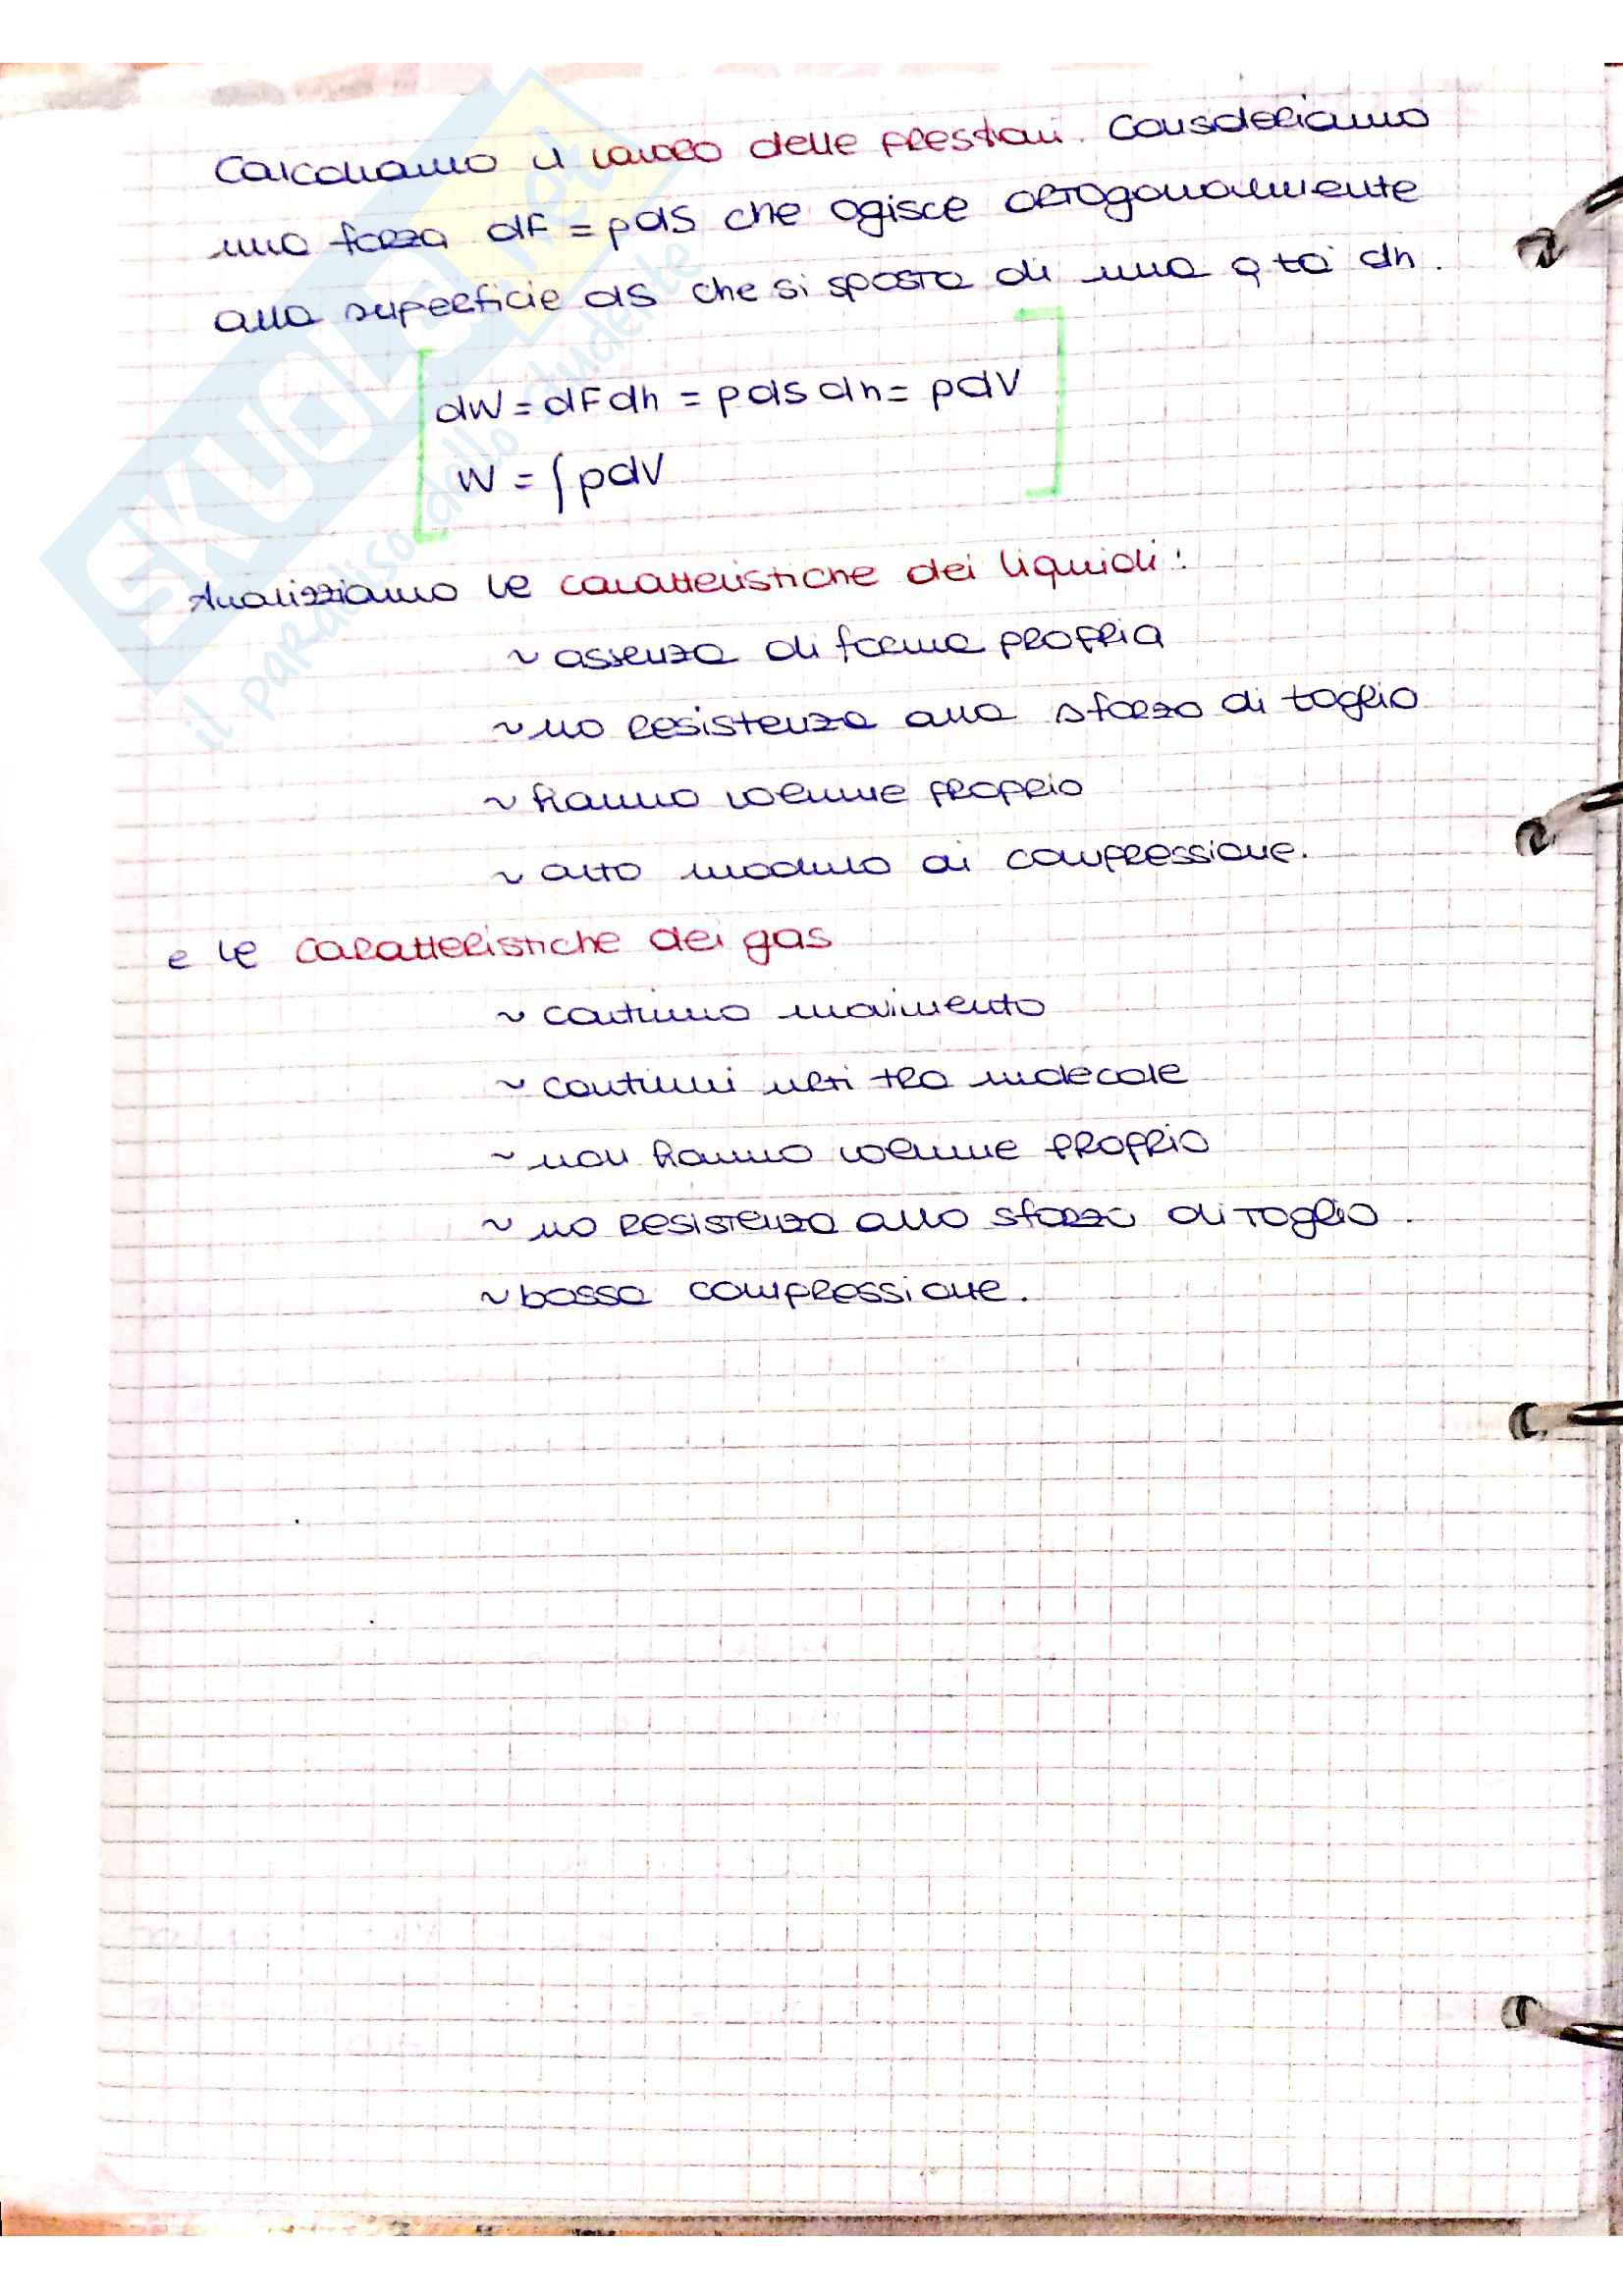 Calcoliamo il lavoro delle pressioni. Consideriamo
una forza dF = pdS che agisce ortogonalmente
alla superficie dS che si sposta di una q.tà dh.
dW = dFdh = pdSdh = pdV
W = ∫pdV
Analizziamo le caratteristiche dei liquidi:
~ assenza di forma propria
~ no resistenza alla sforzo di taglio
~ hanno volume proprio
~ alto modulo di compressione.
e le caratteristiche dei gas
~ continuo movimento
~ continui urti tra molecole
~ non hanno volume proprio
~ no resistenza allo sforzo di taglio.
~ bassa compressione.
SKUOLA.net
il paradiso dello studente